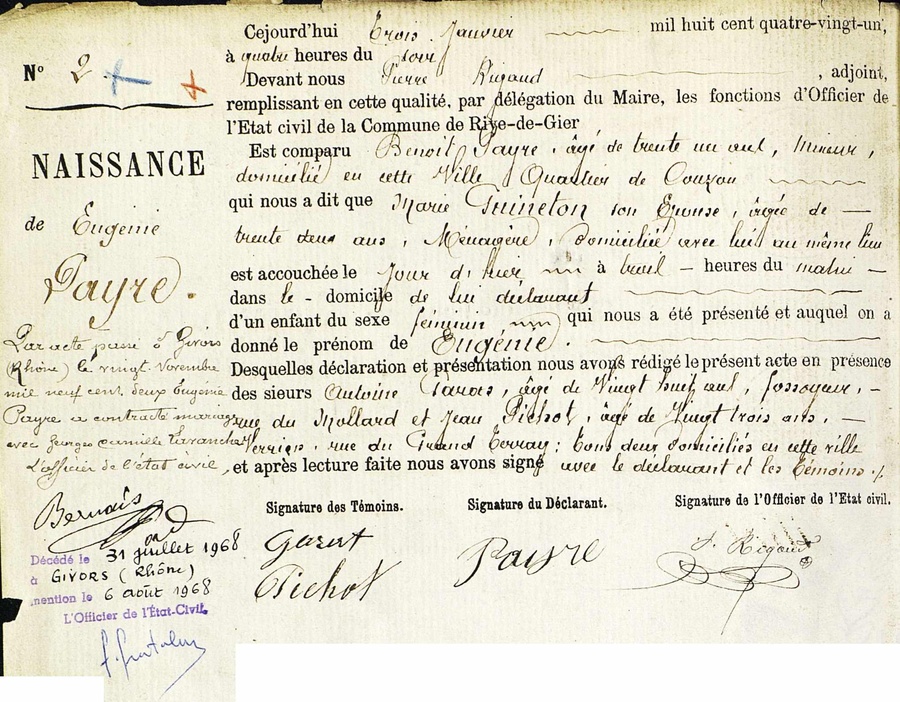 N° 2
NAISSANCE
de Eugénie
Payre.
Par acte passé à Givors
(Rhône) le vingt Novembre
mil neuf cent deux Eugénie
Payre a contracté mariage
avec Georges Camille
L'officier de l'état civil,
Décédé le 31 juillet 1968
à GIVORS (Rhône)
mention le 6 août 1968
L'Officier de l'État-Civil.
Cejourd'hui Trois Janvier mil huit cent quatre-vingt-un,
à quatre heures du soir
Devant nous Pierre Rigaud, adjoint,
remplissant en cette qualité, par délégation du Maire, les fonctions d'Officier de
l'Etat civil de la Commune de Rive-de-Gier
Est comparu Benoit Payre, âgé de trente un ans, Mineur,
domicilié en cette Ville, Quartier de Couzon
qui nous a dit que Marie Guineton son Epouse, âgée de
trente deux ans, Ménagère, domiciliée avec lui au même lieu
est accouchée le Jour d'hier à trois heures du matin
dans le domicile de lui déclarant
d'un enfant du sexe féminin qui nous a été présenté et auquel on a
donné le prénom de Eugénie.
Desquelles déclaration et présentation nous avons rédigé le présent acte en présence
des sieurs Antoine âgé de Vingt huit ans, fossoyeur,
rue du Mollard et Jean Pichot, âgé de Vingt trois ans,
Verrier, rue du Grand tous deux domiciliés en cette ville
et après lecture faite nous avons signé avec le déclarant et les témoins ./.
Signature des Témoins.
Pichot
Signature du Déclarant.
Payre
Signature de l'Officier de l'Etat civil.
P. Rigaud